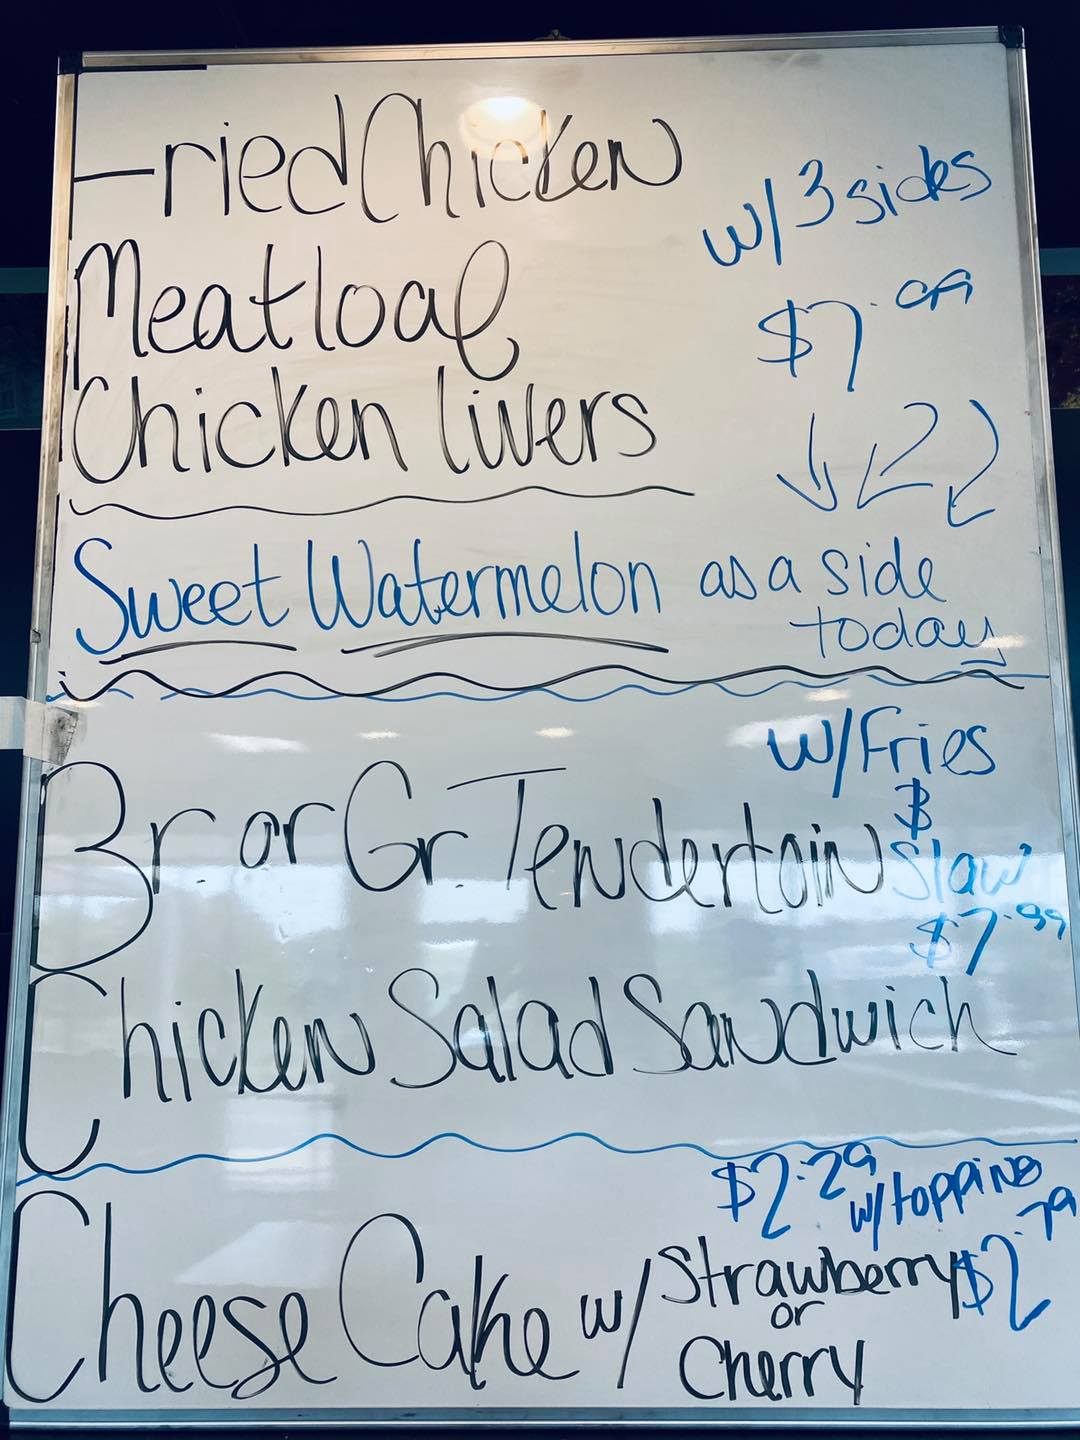 Fried Chicken
w/ 3 sides
Meatloaf
$7.99
Chicken livers
Sweet Watermelon as a side
today
w/ Fries
&
Br. or Gr. Tendertoin Slaw
$7.99
Chicken Salad Sandwich
$2.29
w/ topping
$2.79
Cheese Cake w/ Strawberry
or
Cherry